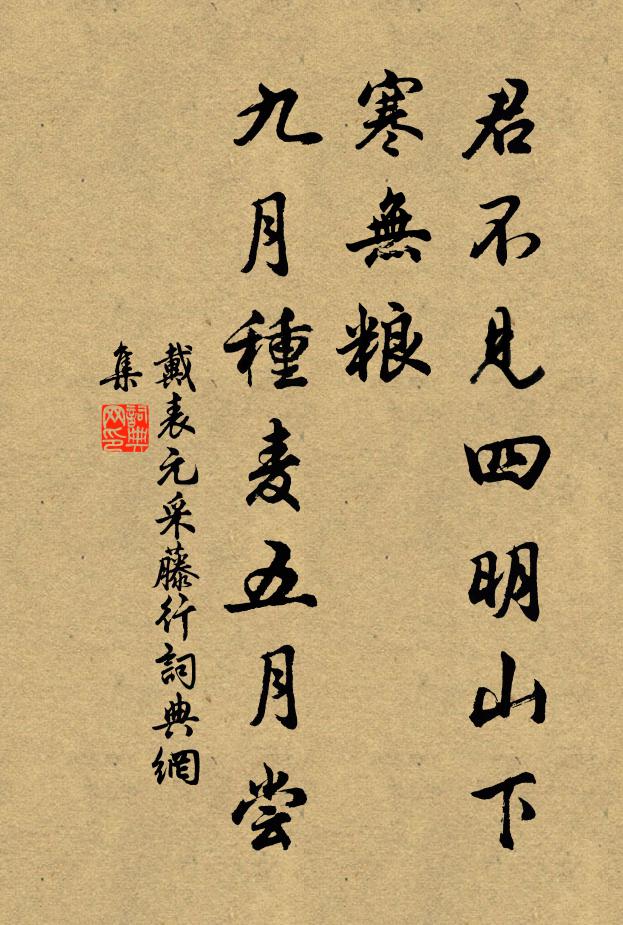 君不見四明山下
寒無粮
九月種麦五月尝
戴表元采藤行詞典網
集
詞典网印